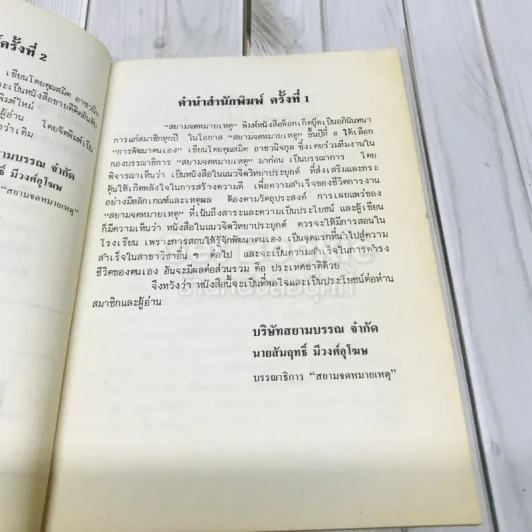 ครั้งที่ 2
เขียนโดยคุณสมิต อาชวนิจกุล
จะเป็นหนังสือขายดีติดอันดับ
พิมพ์ใหม่
โดย จัดพิมพ์เป็น
ผู้อ่าน
ว่าเดิม
สยามบรรณ จำกัด
มีวงศ์อุโฆษ
“สยามจดหมายเหตุ”
คำนำสำนักพิมพ์ ครั้งที่ 1
“สยามจดหมายเหตุ” พิมพ์หนังสือพ็อกเก็ตบุ๊คเป็นอภินันทนา
การแก่สมาชิกทุกปี ในโอกาส “สยามจดหมายเหตุ” ขึ้นปีที่ 8 ได้เลือก
“การพัฒนาตนเอง” เขียนโดยคุณสมิต อาชวนิจกุล ซึ่งเคยร่วมทีมงานใน
กองบรรณาธิการ “สยามจดหมายเหตุ” มาก่อน เป็นบรรณาการ โดย
พิจารณาเห็นว่า เป็นหนังสือในแนวจิตวิทยาประยุกต์ ที่ส่งเสริมและกระ
ตุ้นให้เกิดพลังใจในการสร้างความดี เพื่อความสำเร็จของชีวิตการงาน
อย่างมีหลักเกณฑ์และเหตุผล ต้องตามวัตถุประสงค์ การเผยแพร่ของ
“สยามจดหมายเหตุ” ที่เน้นถึงสาระและความเป็นประโยชน์ และผู้เขียน
ก็มีความเห็นว่า หนังสือในแนวจิตวิทยาประยุกต์ ควรจะให้มีการสอนใน
โรงเรียน เพราะการสอนให้รู้จักพัฒนาตนเอง เป็นจุดแรกที่นำไปสู่ความ
สำเร็จในสาขาวิชาอื่น ๆ ต่อไป และจะเป็นความสำเร็จในการดำรง
ชีวิตของตนเอง อันจะมีผลต่อส่วนรวม คือ ประเทศชาติด้วย
จึงหวังว่า หนังสือนี้จะเป็นที่พอใจและเป็นประโยชน์ต่อท่าน
สมาชิกและผู้อ่าน
บริษัทสยามบรรณ จำกัด
นายสัมฤทธิ์ มีวงศ์อุโฆษ
บรรณาธิการ “สยามจดหมายเหตุ”